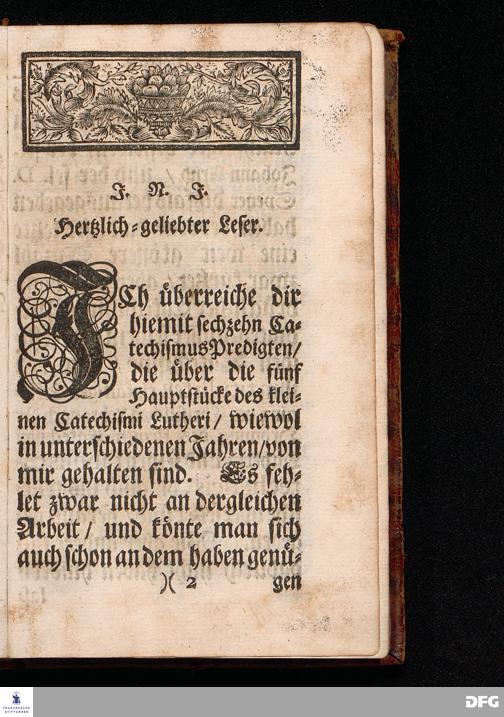 J. N. J.
Hertzlich-geliebter Leser.
JCh überreiche dir
hiemit sechzehn Ca-
techismus Predigten/
die über die fünf
Hauptstücke des klei-
nen Catechismi Lutheri/ wiewol
in unterschiedenen Jahren/ von
mir gehalten sind. Es feh-
let zwar nicht an dergleichen
Arbeit/ und könte man sich
auch schon an dem haben genü-
)( 2 gen
FRANCKESCHE
STIFTUNGEN
DFG